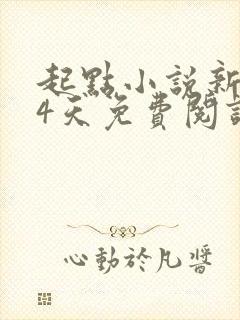 起點小說新
4天免費閱讀
心動於凡醬